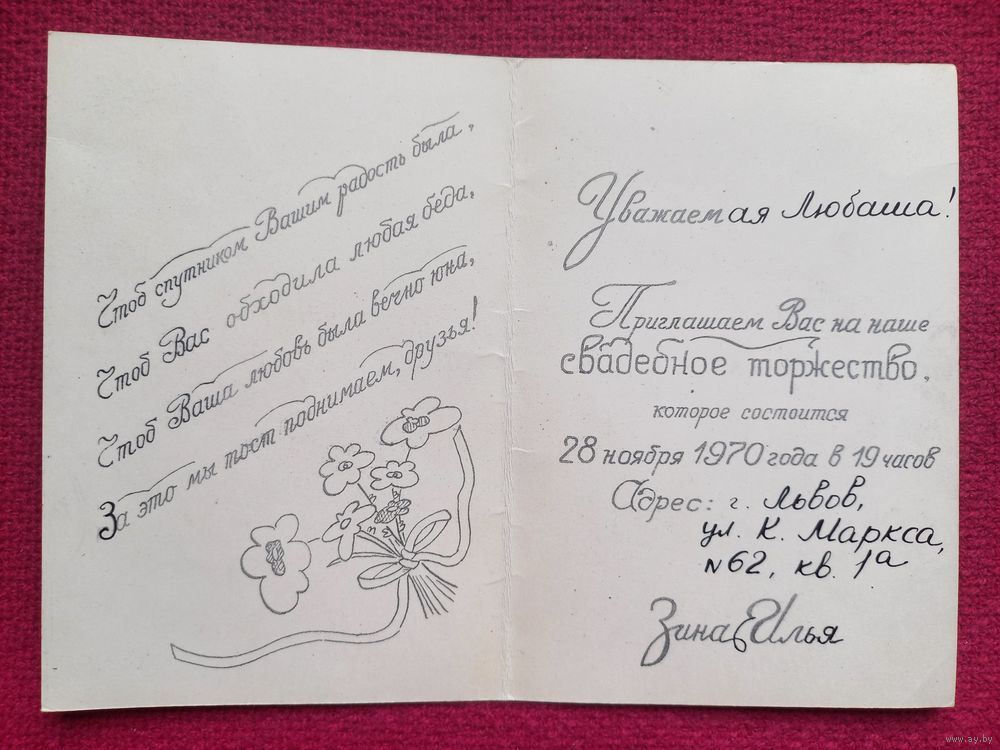 Чтоб спутником Вашим радость была,
Чтоб Вас обходила любая беда,
Чтоб Ваша любовь была вечно юна,
За это мы тост поднимаем, друзья!
Уважаемая Любаша!
Приглашаем Вас на наше
свадебное торжество,
которое состоится
28 ноября 1970 года в 19 часов
Адрес: г. Львов,
ул. К. Маркса,
N62, кв. 1а
Зина, Илья
www.ay.by